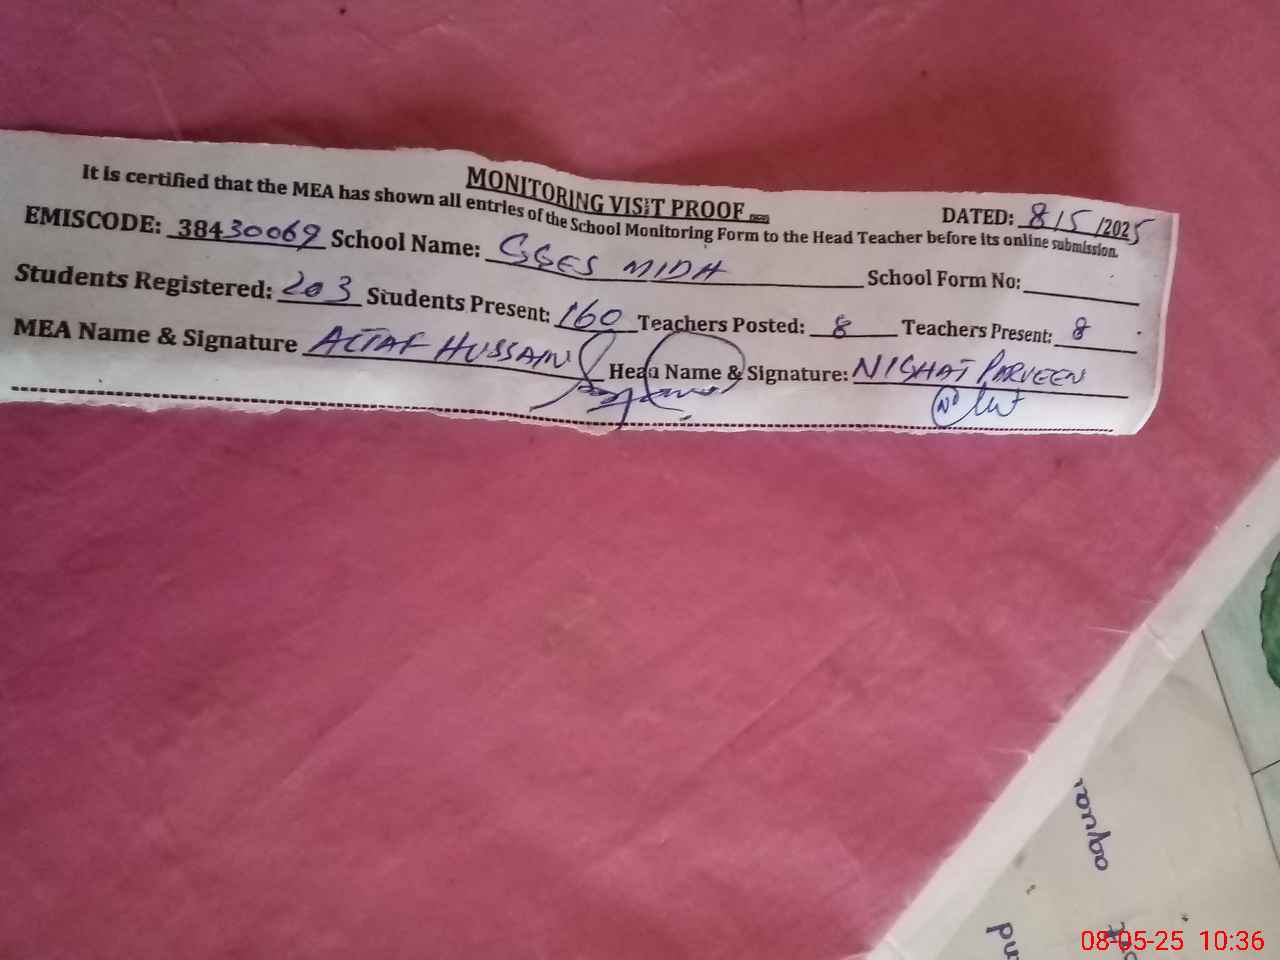 MONITORING VISIT PROOF
DATED: 8/5/2025
It is certified that the MEA has shown all entries of the School Monitoring Form to the Head Teacher before its online submission.
EMISCODE: 38430069 School Name: GGES MIDH School Form No:
Students Registered: 203 Students Present: 160 Teachers Posted: 8 Teachers Present: 8
MEA Name & Signature ALTAF HUSSAIN Head Name & Signature: NISHAT PARVEEN
08-05-25 10:36